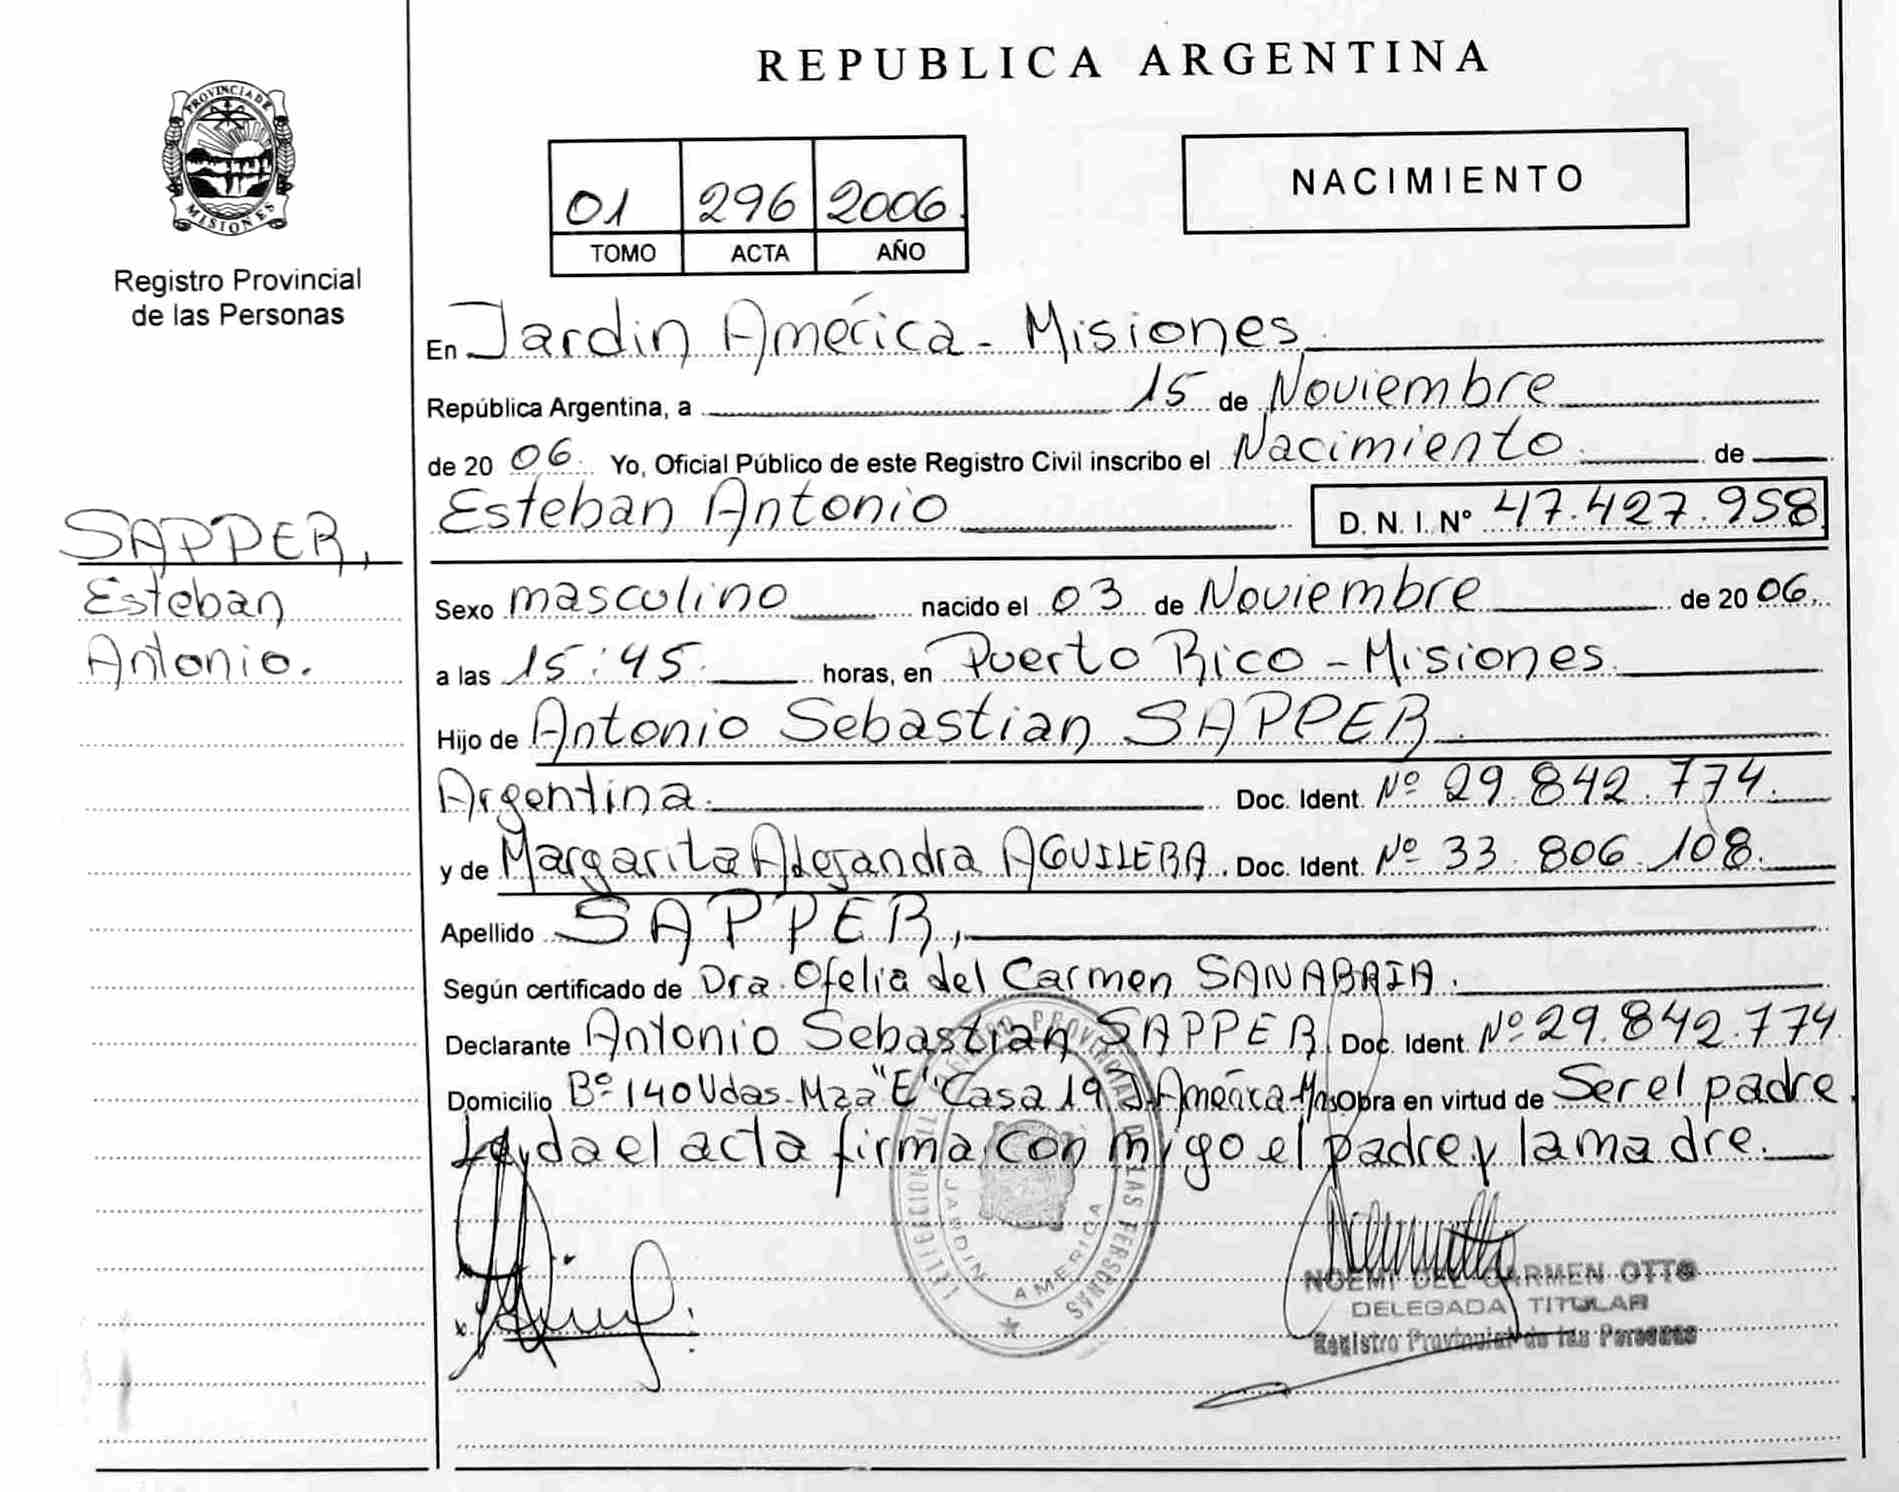 REPUBLICA ARGENTINA
PROVINCIA DE
MISIONES
Registro Provincial
de las Personas
01 296 2006
TOMO ACTA AÑO
NACIMIENTO
En Jardin América - Misiones
República Argentina, a 15 de Noviembre
de 2006. Yo, Oficial Público de este Registro Civil inscribo el Nacimiento de
Esteban Antonio D. N. I. Nº 47.427.958
SAPPER,
Esteban
Antonio.
Sexo masculino nacido el 03 de Noviembre de 2006.
a las 15:45. horas, en Puerto Rico - Misiones.
Hijo de Antonio Sebastian SAPPER.
Argentina. Doc. Ident. Nº 29.842.774.
y de Margarita Alejandra AGUILERA. Doc. Ident. Nº 33.806.108.
Apellido SAPPER,
Según certificado de Dra. Ofelia del Carmen SANABRIA.
Declarante Antonio Sebastian SAPPER Doc. Ident. Nº 29.842.774
Domicilio Bº 140 Vdas. Mza "E" Casa 19 J. América Mnes Obra en virtud de Ser el padre.
Leyda el acta firma con migo el padre y la madre.
REGISTRO PROVINCIAL DE LAS PERSONAS
JARDIN AMERICA
NOEMI DEL CARMEN OTTO
DELEGADA TITULAR
Registro Provincial de las Personas